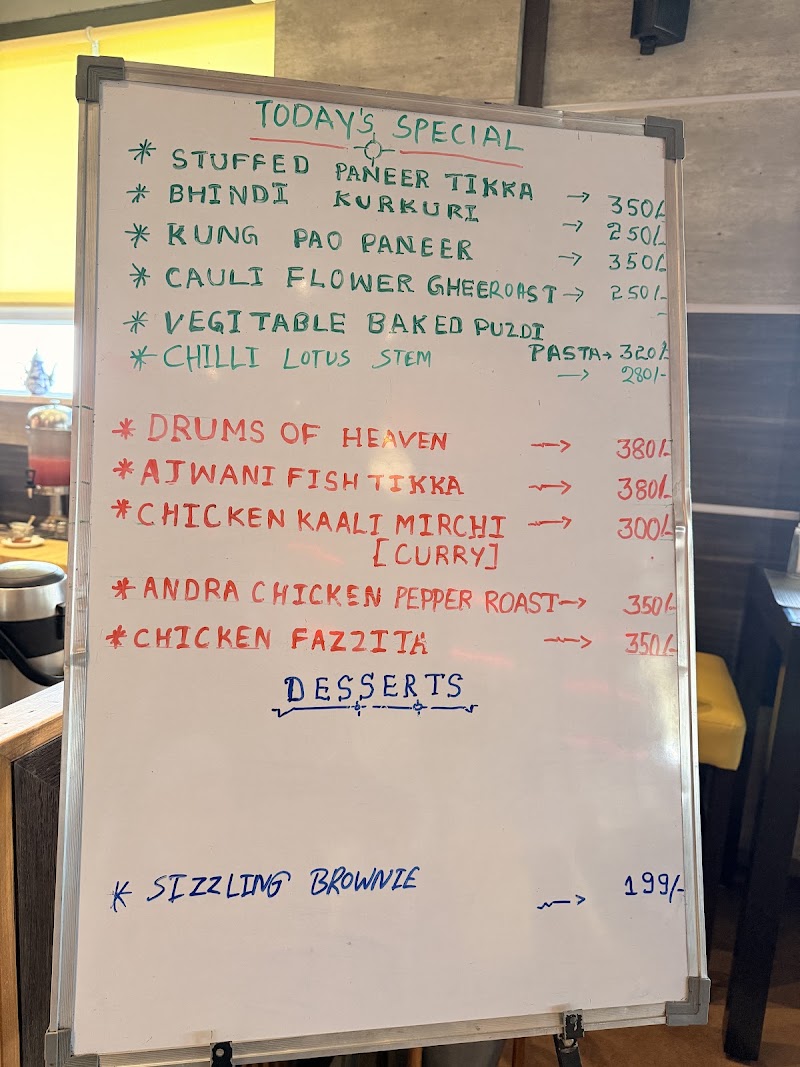 TODAY'S SPECIAL
* STUFFED PANEER TIKKA → 350/-
* BHINDI KURKURI → 250/-
* KUNG PAO PANEER → 350/-
* CAULI FLOWER GHEEROAST → 250/-
* VEGITABLE BAKED PUZDI
PASTA → 320/-
* CHILLI LOTUS STEM → 280/-
* DRUMS OF HEAVEN → 380/-
* AJWANI FISH TIKKA → 380/-
* CHICKEN KAALI MIRCHI → 300/-
[CURRY]
* ANDRA CHICKEN PEPPER ROAST → 350/-
* CHICKEN FAZZITA → 350/-
DESSERTS
* SIZZLING BROWNIE → 199/-